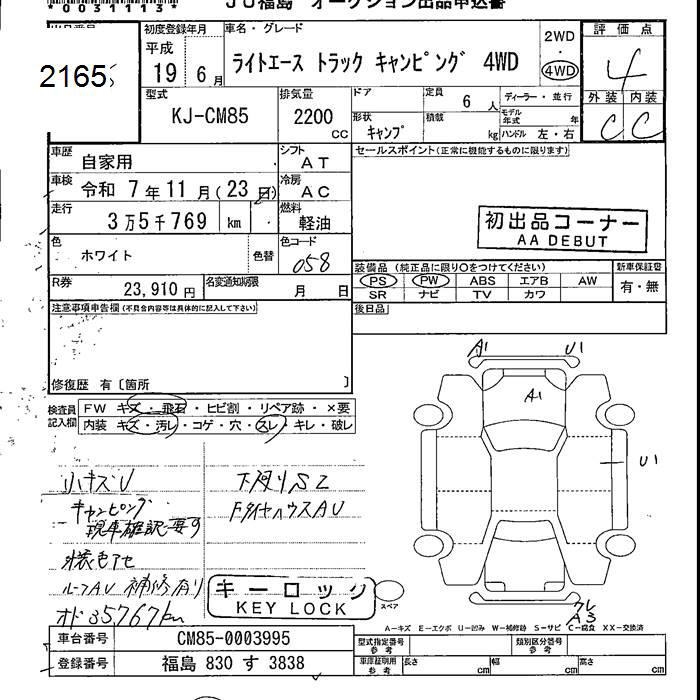 *0031113*
JU福島 オークション出品申込書
出品番号
2165
初度登録年月
平成
19年 6月
車名・グレード
ライトエース トラック キャンピング 4WD
2WD
・
4WD
評価点
4
外装 内装
C C
型式
KJ-CM85
排気量
2200
CC
ドア
定員
6 人
ディーラー・並行
形状
キャンプ
積載
kg
モデル年式 年
ハンドル 左・右
車歴
自家用
シフト
AT
セールスポイント(正常に機能するものに限ります)
車検
令和 7年11月(23日)
冷房
AC
走行
3万5千769 km
燃料
軽油
初出品コーナー
AA DEBUT
色
ホワイト
色替
色コード
058
装備品 (純正品に限り○をつけてください)
新車保証書
PS PW ABS エアB AW
SR ナビ TV カワ
有・無
R券
23,910 円
名変通知期限
月 日
後日品
注意事項申告欄(不具合内容等は具体的に記入して下さい)
修復歴 有〔箇所 〕
検査員記入欄
FW キズ・飛石・ヒビ割・リペア跡・×要
内装 キズ・汚レ・コゲ・穴・スレ・キレ・破レ
A1 U1
A1
U1
小キズU
下廻りS2
キャンピング
現車確認要す
FタイヤハウスAU
ルーフAU 補修有り
オド35767km
キーロック
KEY LOCK
スペア
A3
A-キズ E-エクボ U-凹み W-補修跡 S-サビ C-腐食 XX-交換済
車台番号
CM85-0003995
登録番号
福島 830 す 3838
型式指定番号
参考
類別区分番号
参考
車庫証明用
参考
長さ cm
幅 cm
高さ cm